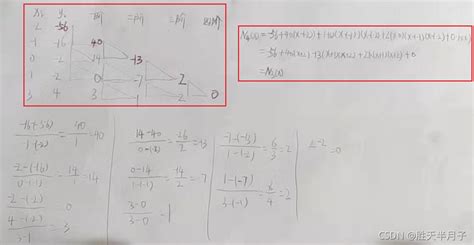 xi yi 一阶 二阶 三阶 四阶
-2 -56
-1 -16 40
0 -2 14 -13
1 -2 0 -7 2
3 4 3 1 2 0
N₄(x) = -56+40(x+2)+(-13)(x+1)(x+2)+2(x+2)(x+1)(x)+0
= -56+40(x+2)-13(x+1)(x+2)+2x(x+1)(x+2)+0
= N₃(x)
-16-(-56) / -1-(-2) = 40/1 = 40
-2-(-16) / 0-(-1) = 14/1 = 14
-2-(-2) / 1-0 = 0
4-(-2) / 3-1 = 3
14-40 / 0-(-2) = -26/2 = -13
0-14 / 1-(-1) = -14/2 = -7
3-0 / 3-0 = 1
-7-(-13) / 1-(-2) = 6/3 = 2
1-(-7) / 3-(-1) = 8/4 = 2
2-2 = 0
CSDN @胜天半月子